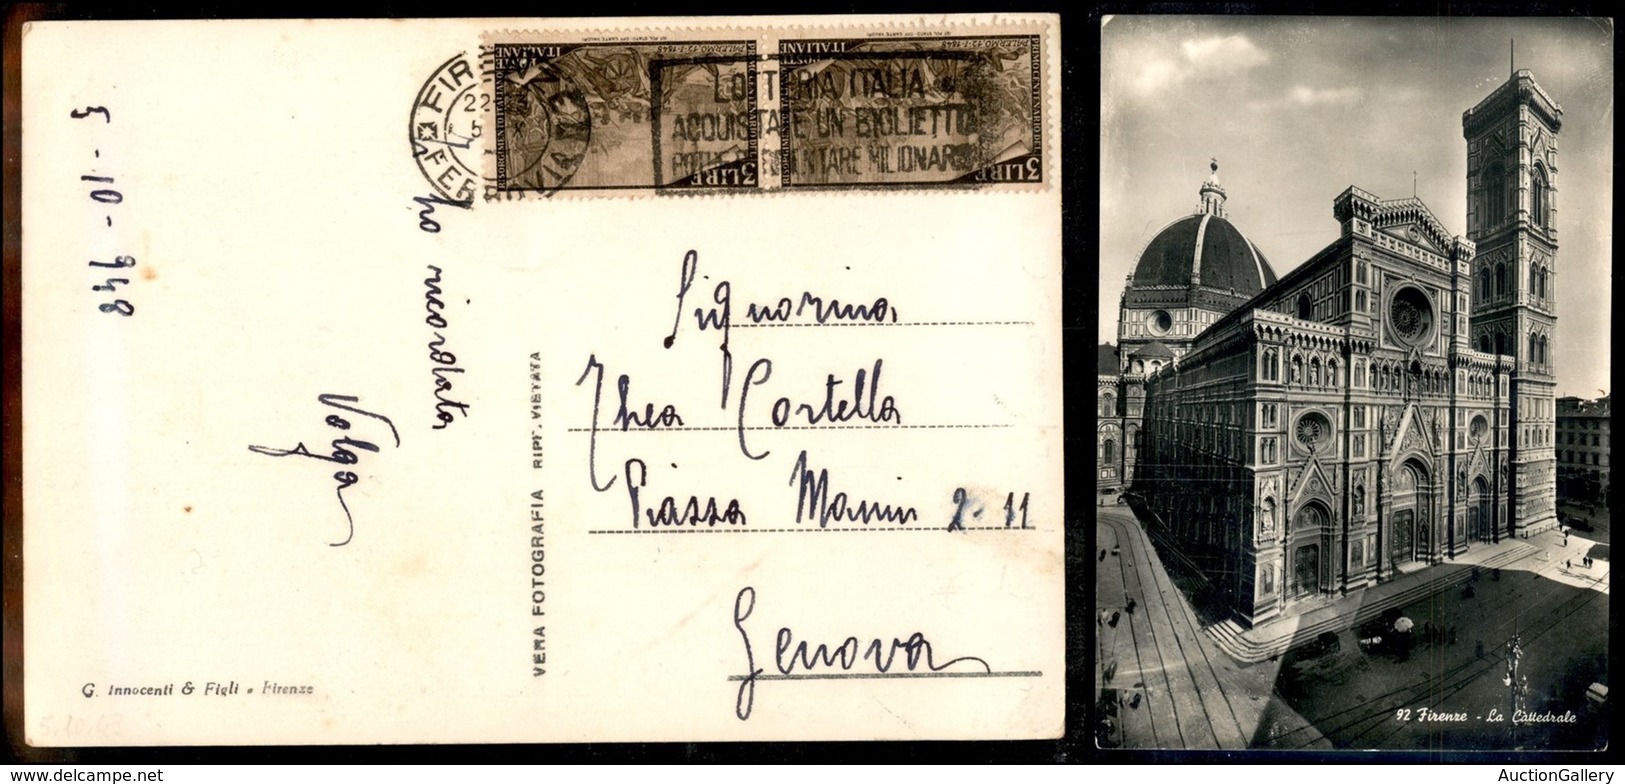 5-10-948
ricordata
Volga
G. Innocenti & Figli • Firenze
5.10.48
VERA FOTOGRAFIA RIPR. VIETATA
FIR
22
5 X
FERROVIA
LOTTERIA ITALIA
ACQUISTATE UN BIGLIETTO
POTRETE DIVENTARE MILIONARI
PALERMO 12-1-1848
POSTE ITALIANE
3 LIRE
PALERMO 12-1-1848
POSTE ITALIANE
PRIMO CENTENARIO DEL RISORGIMENTO ITALIANO
3 LIRE
Signorina
Thea Cortella
Piazza Manin 2-11
Genova
92 Firenze - La Cattedrale
AuctionGallery